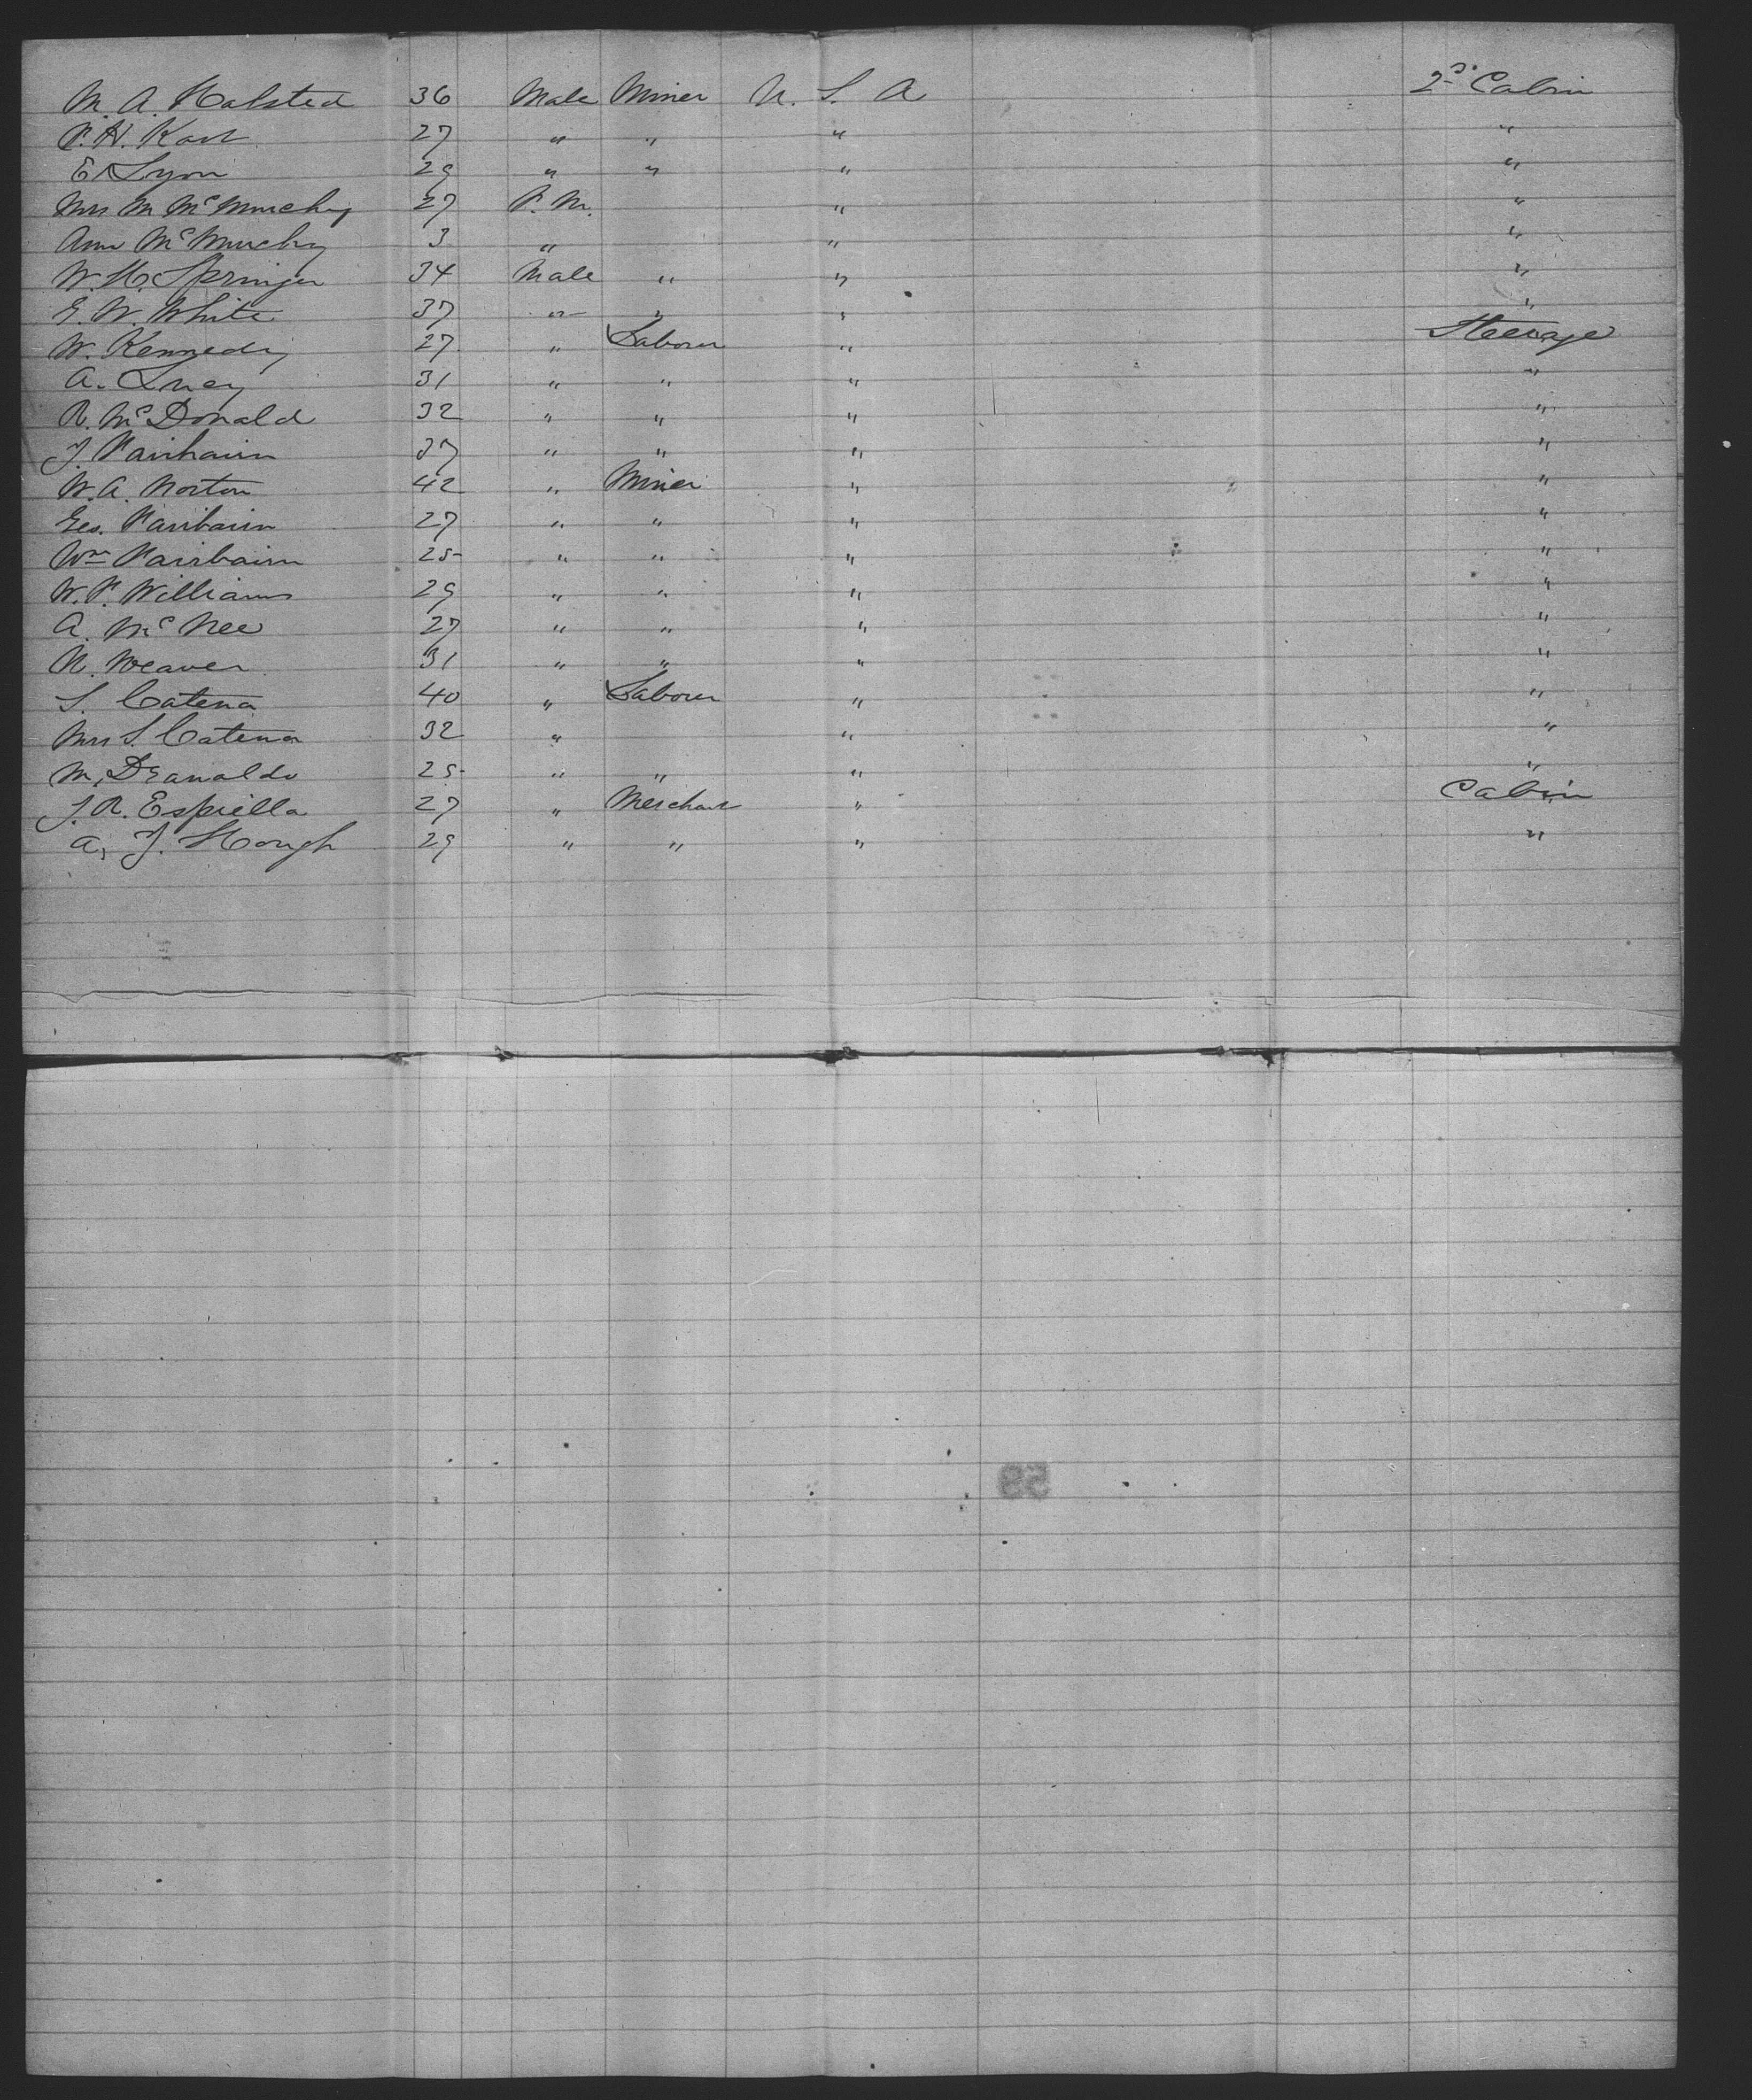 M. A. Halsted 36 Male Miner U. S. A 2nd Cabin
F. H. Kast 27 " " " "
E Lyon 29 " " " "
Mrs M McMurchy 27 F. M. " "
Ann McMurchy 3 " " "
W. H. Springer 34 Male " " "
E. W. White 37 " " " "
W. Kennedy 27 " Laborer " Steerage
A. 31 " " " "
R. McDonald 32 " " " "
J. Fairbairn 37 " " " "
W. A. Norton 42 " Miner " "
Geo. Fairbairn 27 " " " "
Wm Fairbairn 25 " " " "
W. F. Williams 29 " " " "
A. McNee 27 " " " "
N. Weaver 31 " " " "
S. Catena 40 " Laborer " "
Mrs S. Catena 32 " " "
M. 25 " " " "
J. R. Espriella 27 " Merchant " Cabin
A. J. Hough 29 " " " "
59